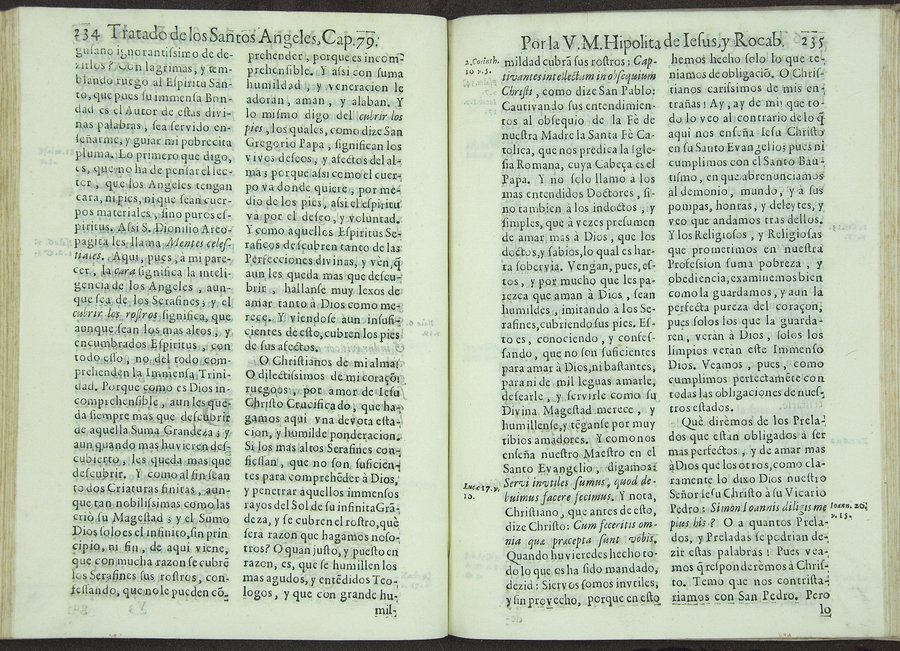 234 Tratado de los Santos Angeles, Cap. 79.
gusano ignorantissimo de de-
zirlos? Con lagrimas, y tem-
blando ruego al Espiritu San-
to, que pues su immensa Bon-
dad es el Autor de estas divi-
nas palabras, sea servido en-
señarme, y guiar mi pobrecita
pluma. Lo primero que digo,
es, que no ha de pensar el lec-
tor, que los Angeles tengan
cara, ni pies, ni que sean cuer-
pos materiales, sino puros es-
piritus. Assi S. Dionisio Areo-
pagita les llama Mentes celes-
tiales. Aqui, pues, à mi pare-
cer, la cara significa la inteli-
gencia de los Angeles, aun-
que sea de los Serafines; y el
cubrir los rostros significa, que
aunque sean los mas altos, y
encumbrados Espiritus, con
todo esso, no del todo com-
prehenden la Immensa Trini-
dad. Porque como es Dios in-
comprehensible, aun les que-
da siempre mas que descubrir
de aquella Suma Grandeza; y
aun quando mas huvieren des-
cubierto, les queda mas que
descubrir. Y como al fin sean
todos Criaturas finitas, aun-
que tan nobilissimas como las
criò su Magestad; y el Sumo
Dios solo es el infinito, sin prin-
cipio, ni fin, de aqui viene,
que con mucha razon se cubrẽ
los Serafines sus rostros, con-
fessando, que no le pueden cõ-
prehender, porque es incom-
prehensible. Y assi con suma
humildad, y veneracion le
adoran, aman, y alaban. Y
lo mismo digo del cubrir los
pies, los quales, como dize San
Gregorio Papa, significan los
vivos deseos, y afectos del al-
ma; porque assi como el cuer-
po va donde quiere, por me-
dio de los pies, assi el espiritu
va por el deseo, y voluntad.
Y como aquellos Espiritus Se-
raficos descubren tanto de las
Perfecciones divinas, y ven, q̃
aun les queda mas que descu-
brir, hallanse muy lexos de
amar tanto à Dios como me-
rece. Y viendose aun insufi-
cientes de esto, cubren los pies
de sus afectos.
O Christianos de mi alma!
O dilectissimos de mi coraçõ!
ruegoos, por amor de Iesu
Christo Crucificado, que ha-
gamos aqui vna devota esta-
cion, y humilde ponderacion.
Si los mas altos Serafines con-
fiessan, que no son suficien-
tes para comprehẽder à Dios,
y penetrar aquellos immensos
rayos del Sol de su infinita Grã-
deza, y se cubren el rostro, què
serà razon que hagamos noso-
tros? O quan justo, y puesto en
razon, es, que se humillen los
mas agudos, y entẽdidos Teo-
logos, y que con grande hu-
mil-
Por la V. M. Hipolita de Iesus, y Rocab. 235
2. Corinth.
10 v. 5.
mildad cubrã sus rostros: Cap-
tivantes intellectum in obsequium
Christi, como dize San Pablo:
Cautivando sus entendimien-
tos al obsequio de la Fè de
nuestra Madre la Santa Fè Ca-
tolica, que nos predica la Igle-
sia Romana, cuya Cabeça es el
Papa. Y no solo llamo à los
mas entendidos Doctores, si-
no tambien à los indoctos, y
simples, que à vezes presumen
de amar mas à Dios, que los
doctos, y sabios, lo qual es har-
ta sobervia. Vengan, pues, es-
tos, y por mucho que les pa-
rezca que aman à Dios, sean
humildes, imitando à los Se-
rafines, cubriendo sus pies. Es-
to es, conociendo, y confes-
sando, que no son suficientes
para amar à Dios, ni bastantes,
para ni de mil leguas amarle,
desearle, y servirle como su
Divina Magestad merece, y
humillense, y tẽganse por muy
tibios amadores. Y como nos
enseña nuestro Maestro en el
Santo Evangelio, digamos:
Luce 17. v.
10.
Servi invtiles sumus, quod de-
buimus facere fecimus. Y nota,
Christiano, que antes de esto,
dize Christo: Cum feceritis om-
nia quæ præcepta sunt vobis.
Quando huvieredes hecho to-
do lo que os ha sido mandado,
dezid: Siervos somos invtiles,
y sin provecho, porque en esto
hemos hecho solo lo que te-
niamos de obligaciõ. O Chris-
tianos carissimos de mis en-
trañas! Ay, ay de mi! que to-
do lo veo al contrario de lo q̃
aqui nos enseña Iesu Christo
en su Santo Evangelio; pues ni
cumplimos con el Santo Bau-
tismo, en que abrenunciamos
al demonio, mundo, y à sus
pompas, honras, y deleytes, y
veo que andamos tras dellos.
Y los Religiosos, y Religiosas
que prometimos en nuestra
Profession suma pobreza, y
obediencia, examinemos bien
como la guardamos, y aun la
perfecta pureza del coraçon,
pues solos los que la guarda-
ren, veràn à Dios, solos los
limpios veràn este Immenso
Dios. Veamos, pues, como
cumplimos perfectamẽte con
todas las obligaciones de nues-
tros estados.
Què dirèmos de los Prela-
dos que estàn obligados à ser
mas perfectos, y de amar mas
à Dios que los otros, como cla-
ramente lo dixo Dios nuestro
Señor Iesu Christo à su Vicario
Pedro: Simon Ioannis diligis me
Ioann. 20.
v. 15.
plus his? O a quantos Prela-
dos, y Preladas se podrian de-
zir estas palabras! Pues vea-
mos q̃ responderèmos à Chris-
to. Temo que nos contrista-
riamos con San Pedro. Pero
lo